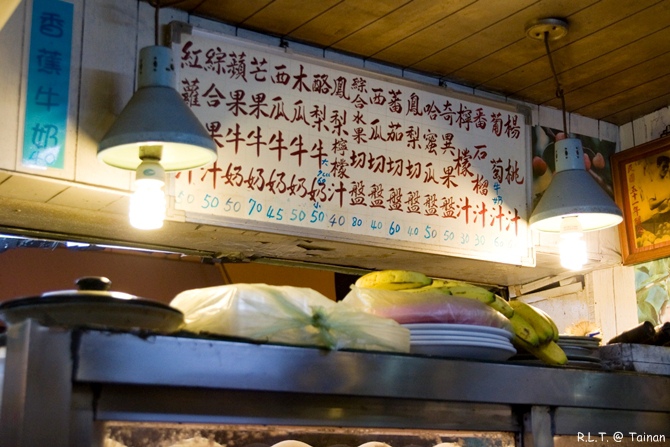 香蕉牛奶
楊桃汁
汁
牛奶
番石榴汁
檸檬汁
奇異果盤
哈蜜瓜盤
鳳梨切盤
蕃茄切盤
西瓜切盤
綜合水果切盤
鳳梨檸檬汁
酪梨牛奶
大
小
木瓜牛奶
西瓜牛奶
芒果牛奶
蘋果牛奶
綜合果汁
紅蘿汁
50 50 50 70 45 50 50 40 80 40 60 40 50 50 30 30
R.L.T. @ Tainan